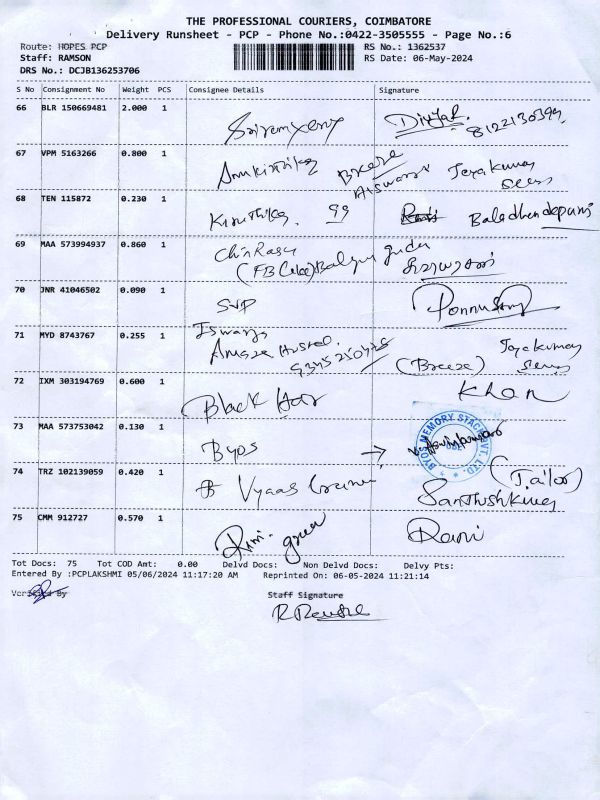 THE PROFESSIONAL COURIERS, COIMBATORE
Delivery Runsheet - PCP - Phone No.:0422-3505555 - Page No.:6
Route: HOPES PCP
RS No.: 1362537
Staff: RAMSON
RS Date: 06-May-2024
DRS No.: DCJB136253706
S No Consignment No Weight PCS Consignee Details Signature
66 BLR 150669481 2.000 1
8122130399
67 VPM 5163266 0.800 1
Breeze
Jeyakumar
68 TEN 115872 0.230 1
Kiruthika 99
Baladhandapani
69 MAA 573994937 0.860 1
70 JNR 41046502 0.090 1
SVP Ponnusamy
71 MYD 8743767 0.255 1
Iswarya
Hostel
(Breeze) Jeyakumar
72 IXM 303194769 0.600 1
Black Khan
73 MAA 573753042 0.130 1
Byos →
BYOS MEMORY STACK PVT. LTD.
74 TRZ 102139059 0.420 1
Vyaas Santhoshkumar (Tailor)
75 CMM 912727 0.570 1
green Rani
Tot Docs: 75 Tot COD Amt: 0.00 Delvd Docs: Non Delvd Docs: Delvy Pts:
Entered By :PCPLAKSHMI 05/06/2024 11:17:20 AM Reprinted On: 06-05-2024 11:21:14
Verified By Staff Signature